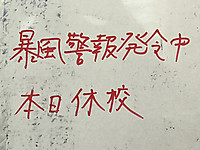 暴風警報発令中
本日休校